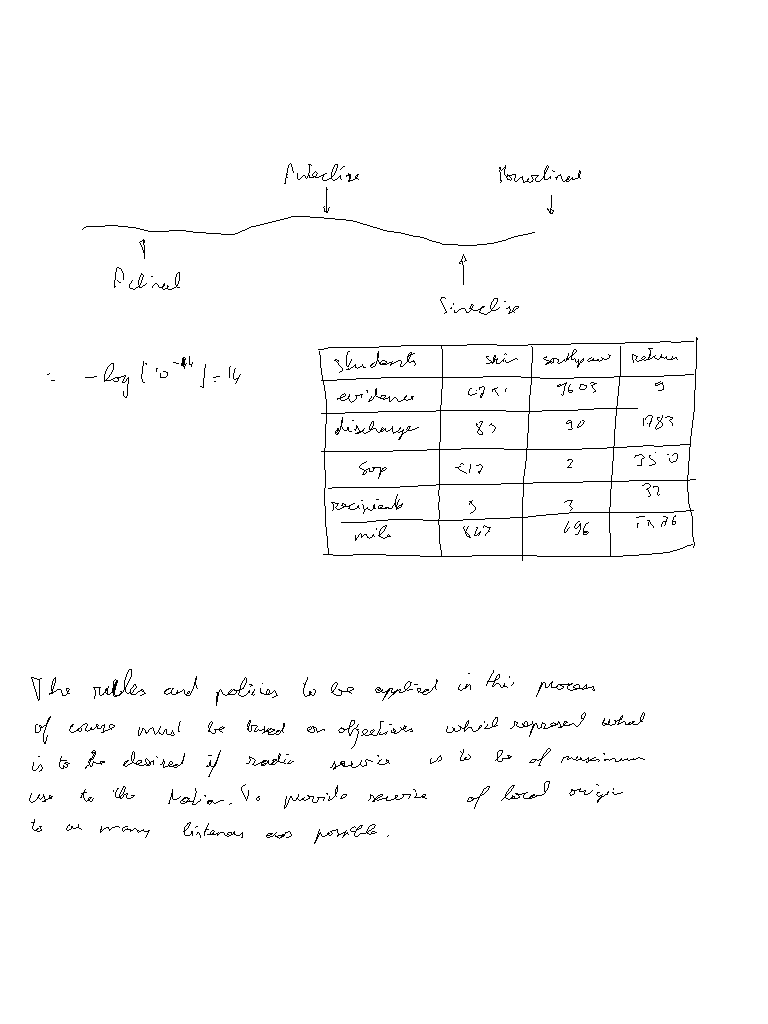 Anteclise Monoclinal
Aclinal
Sineclise
= -log [10^-14] = 14
students skin southpaw return
evidence 9603 9
discharge 83 90 1783
Sop 2
recipients 5 3 32
mile 847 696
The rules and policies to be applied in this process
of course must be based on objectives which represent what
is to be desired if radio service is to be of maximum
use to the Nation. To provide service of local origin
to as many listeners as possible.